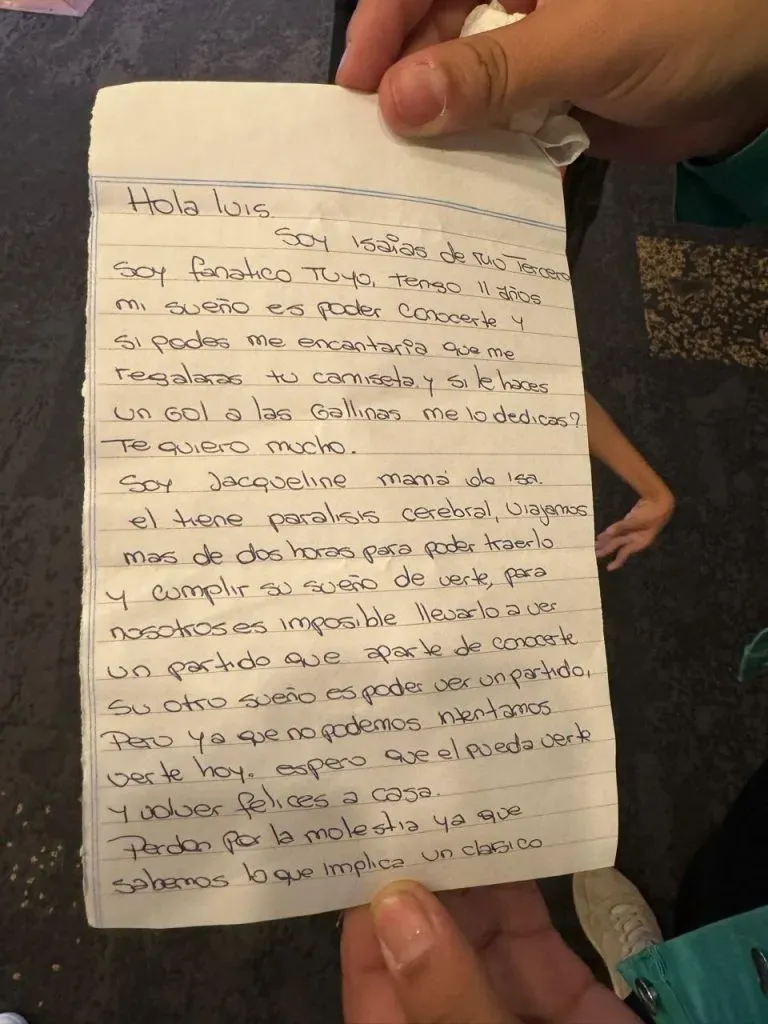 Hola luis.
Soy isaias de Rio Tercero
Soy fanatico TUYO, tengo 11 años
mi sueño es poder conocerte y
si podes me encantaria que me
regalaras tu camiseta y si le haces
un Gol a las Gallinas me lo dedicas?
Te quiero mucho.
Soy Jacqueline mamá de isa.
el tiene paralisis cerebral, viajemos
mas de dos horas para poder traerlo
y cumplir su sueño de verte, para
nosotros es imposible llevarlo a ver
un partido que aparte de conocerte
su otro sueño es poder ver un partido,
Pero ya que no podemos intentamos
verte hoy. espero que el pueda verte
y volver felices a casa.
Perdon por la molestia ya que
sabemos lo que implica un clasico